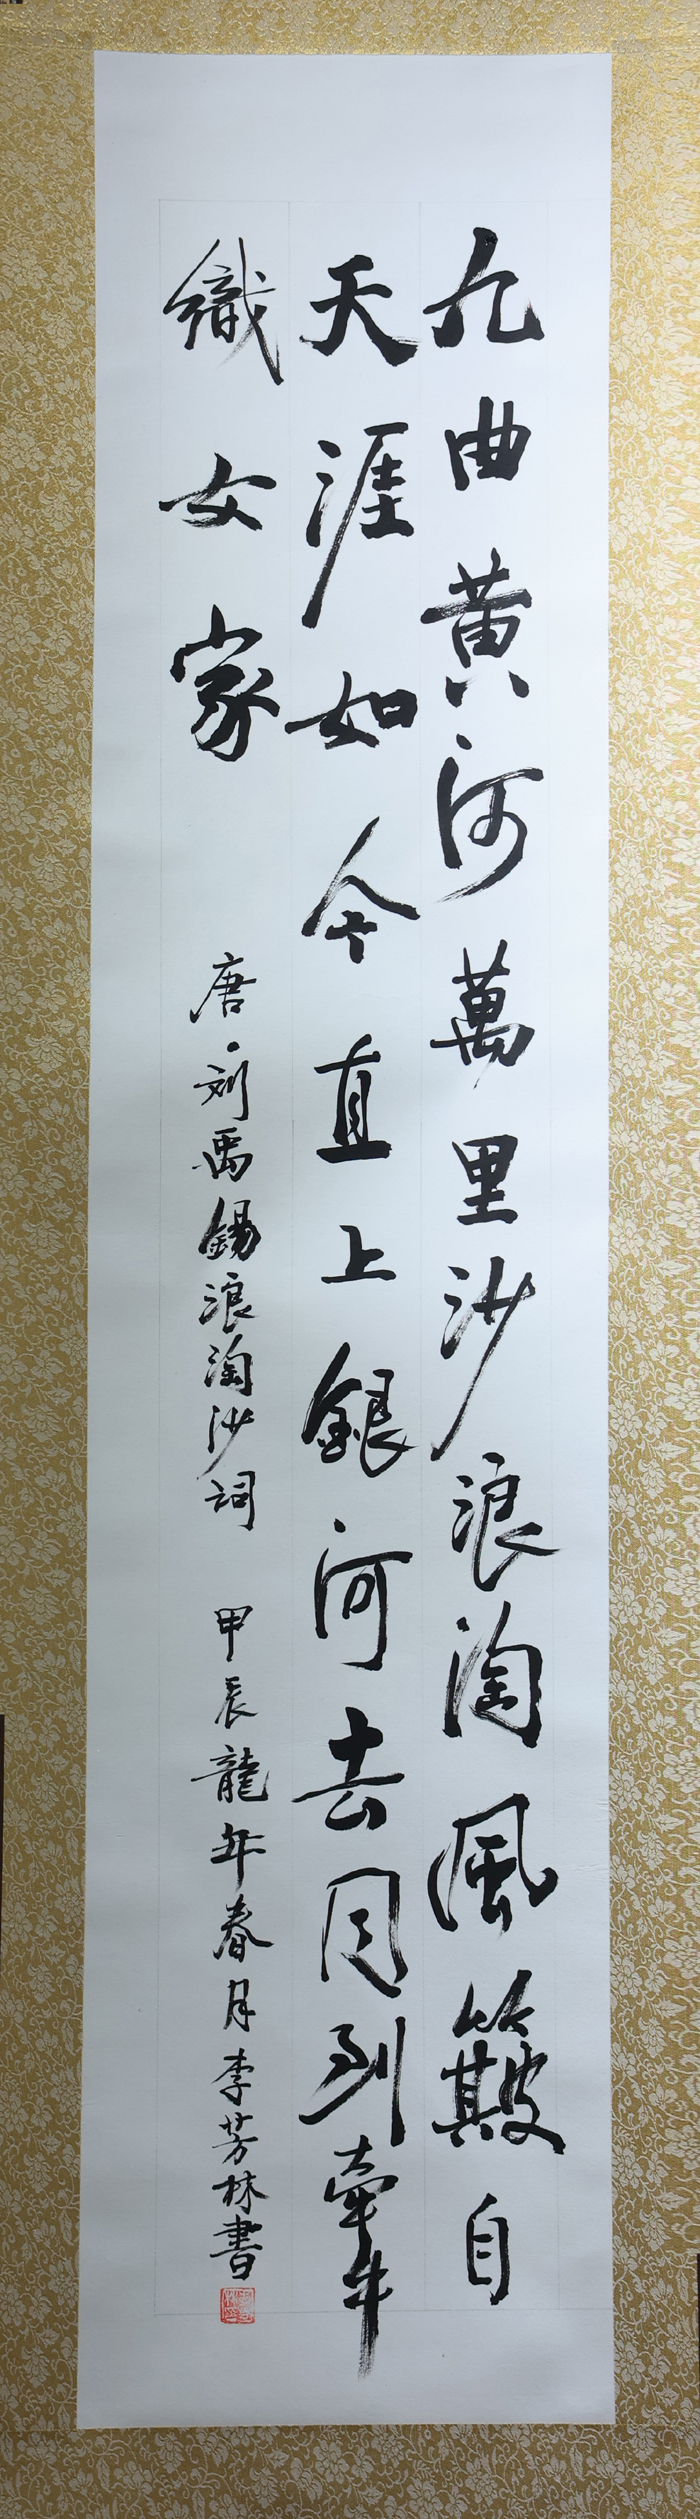 九曲黄河萬里沙浪淘風簸自
天涯如今直上銀河去同到牽牛
織女家
唐·刘禹錫浪淘沙詞 甲辰龍年春月李芳林書